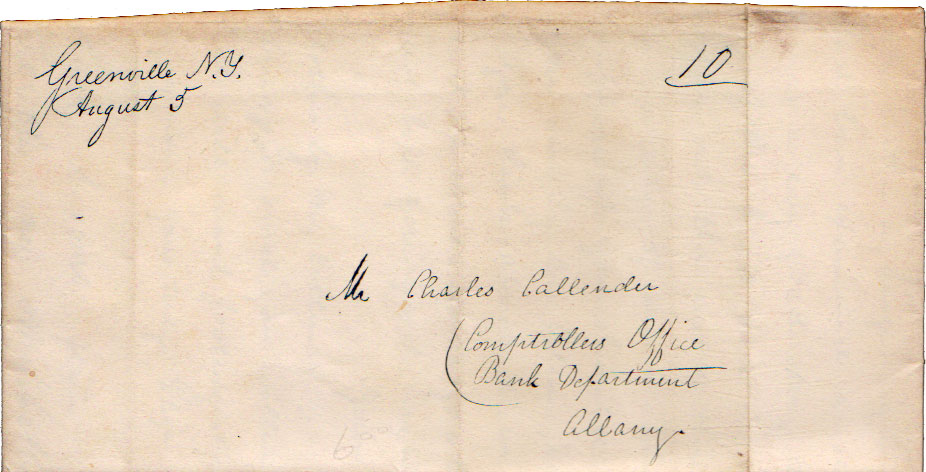 Greenville N.Y.
August 5
10
Mr Charles Callender
Comptrollers Office
Bank Department
Albany.